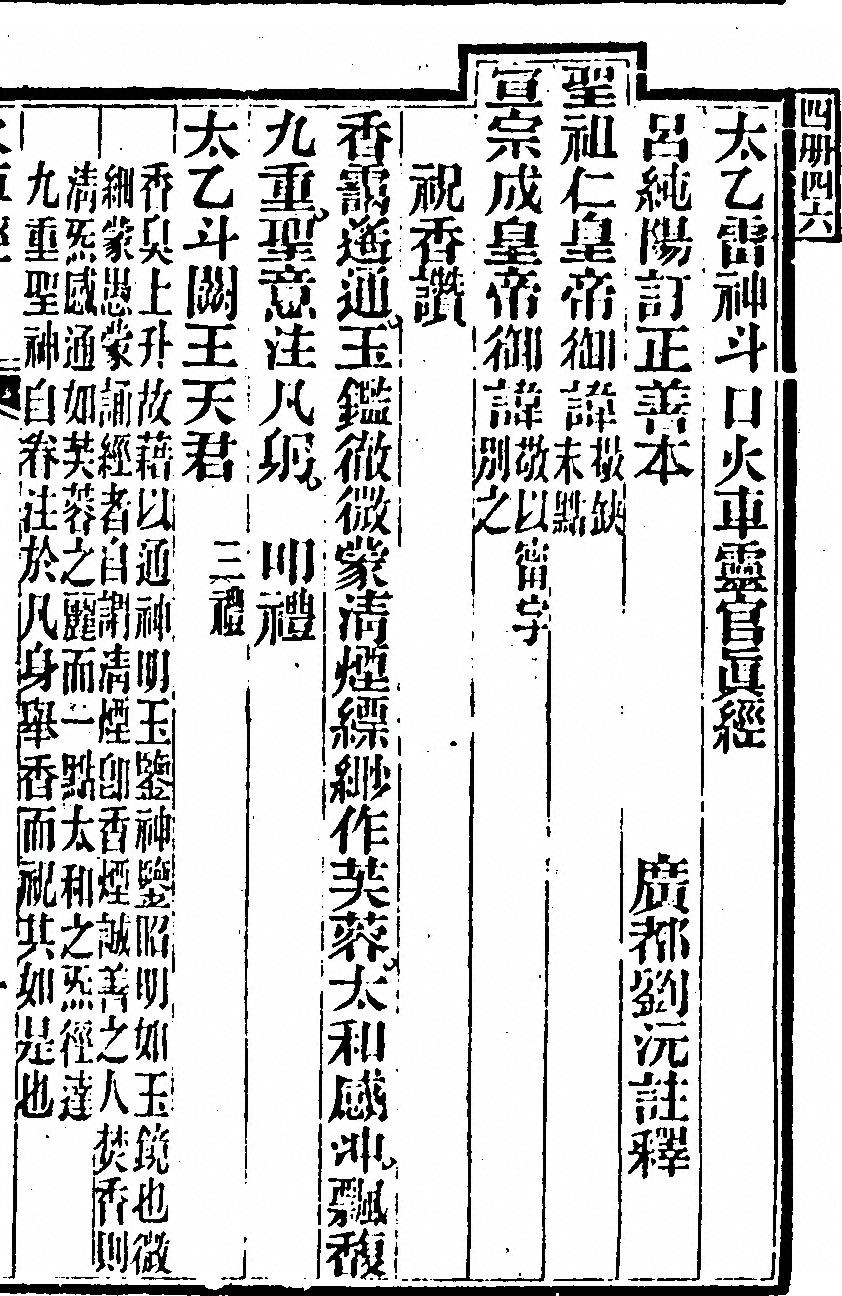 四册四六
太乙雷神斗口火車靈官眞經
呂純陽訂正善本 廣都劉沅註釋
聖祖仁皇帝御諱敬缺末點
宣宗成皇帝御諱敬以甯字別之
祝香讚
香靄遙通玉鑑微微蒙淸煙縹緲作芙蓉太和感沖飄馥
九重聖意注凡躬 叩禮
太乙斗闕王天君 三禮
香臭上升故藉以通神明玉鑒神鑒昭明如玉鏡也微
細蒙愚蒙誦經者自謂淸煙卽香煙誠善之人焚香則
淸炁感通如芙蓉之麗而一點太和之炁徑達
九重聖神自眷注於凡身舉香而祝其如是也